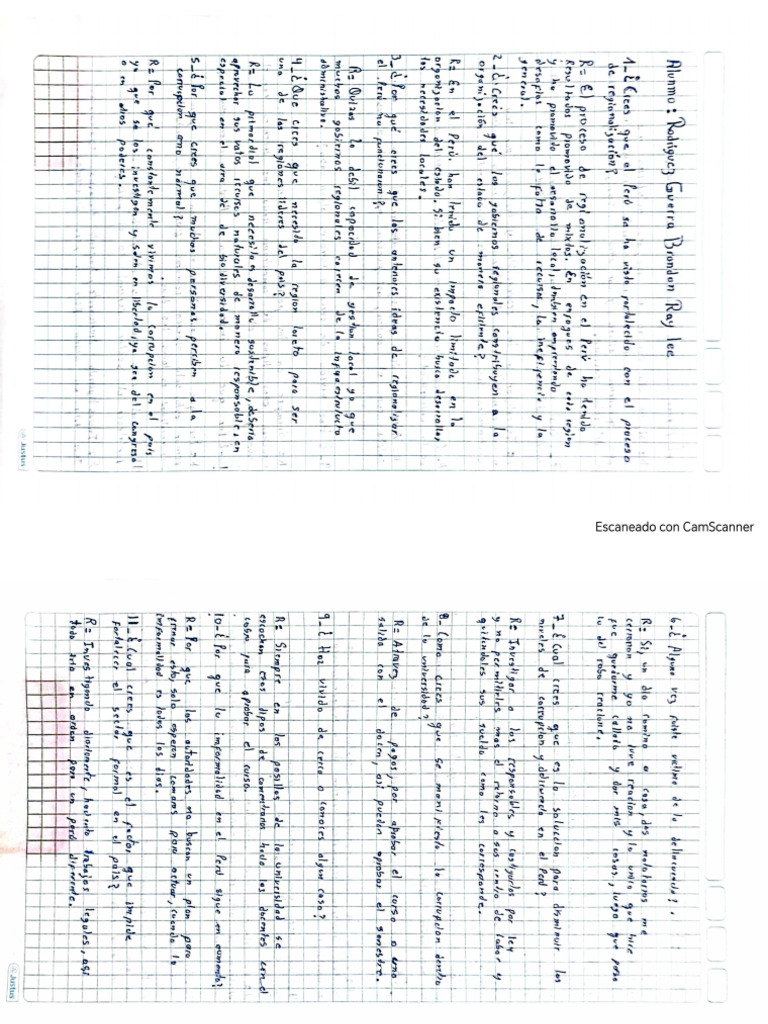 Alunmo: Rodriguez Guerra Brandon Ray lee
1-¿Crees que el Perú se ha visto fortalecido con el proceso
de regionalización?
R= El proceso de regionalización en el Perú ha tenido
Resultados promovido de mixtos. En enfoques de cada region
y ha promovido el desarrollo local, tambien emprentando
desafios como la falta de recursos, la ineficiencia y la
general.
2-¿Crees qué los gobiernos regionales constribuyen a la
organización del estado de manera eficiente?
R= En el Perú, han tenido un impacto limitado en la
organización del estado. Si bien su existencia busca desarrollar
las necesidades locales.
3-¿Por qué crees que las anteriores ideas de regionalisar
el Perú no funcionaron?
R= Quizas la debil capacidad de gestion local ya que
muchos gobiernos regionales carecen de la infraestructuta
administrativa.
4-¿Que crees que necesita la region loreto para ser
una de las regiones lideres del país?
R= Lo primordial que necesita es desarrollo sostenible, deberia
aprovechar sus vatos recursos naturales de manera responsable, en
especial en el area de de biodiversidad.
5-¿Por que crees que muchas personas perciben a la
corrupcion como normal?
R= Por qué constantemente vivimos la corrupcion en el país
ya que se los investigan y salen en libertad, ya sea del congreso
o en otros poderes.
Justus
Escaneado con CamScanner
6-¿ Alguna vez fuiste victima de la delincuencia?
R= Si, un dia camino a casa, dos malotarios me
cerraron y yo no tuve reacion y lo unito que hice
fue quedarme callado y dar mis cosas, luego que paso
lo del robo reacione.
7-¿Cual crees que es la soluccion para disminuir los
niveles de corrupcion y delicuencia en el Perú?
R= Investigar a los responsables y castigarlos por ley
y no permitirles mas el retorno a sus centro de labor y
quitandoles sus sueldo como les corresponde.
8-Como crees que se manifiesta la corrupcion dentro
de la universidad?
R= Atraves de pagos, por aprobar el curso o una
salida con el docen, asi pueden aprobar el semestre.
9-¿Haz vivido de cerca o conoces algun caso?
R= Siempre en los pasillos de la universidad se
escuchan esos tipos de comentarios hacia los docentes con el
cobro para aprobar el curso.
10-¿Por que la informalidad en el Perú sigue en aumento?
R= Por que las autoridades no buscan un plan para
frenar esto, solo esperan camaras para actuar, cuando la
informalidad es todos los dias.
11-¿Cual crees que es el factor que impide
fortalecer el sector formal en el país?
R= Investigando diariamente, haciendo trabajos legales, asi
todo aria en orden para un perú diferente.
Justus